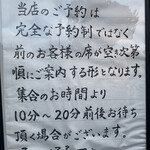 当店のご予約は
完全な予約制ではなく
前のお客様の席が空き次第
順にご案内する形となります。
集合のお時間より
10分〜20分前後お待ち
頂く場合がございます。